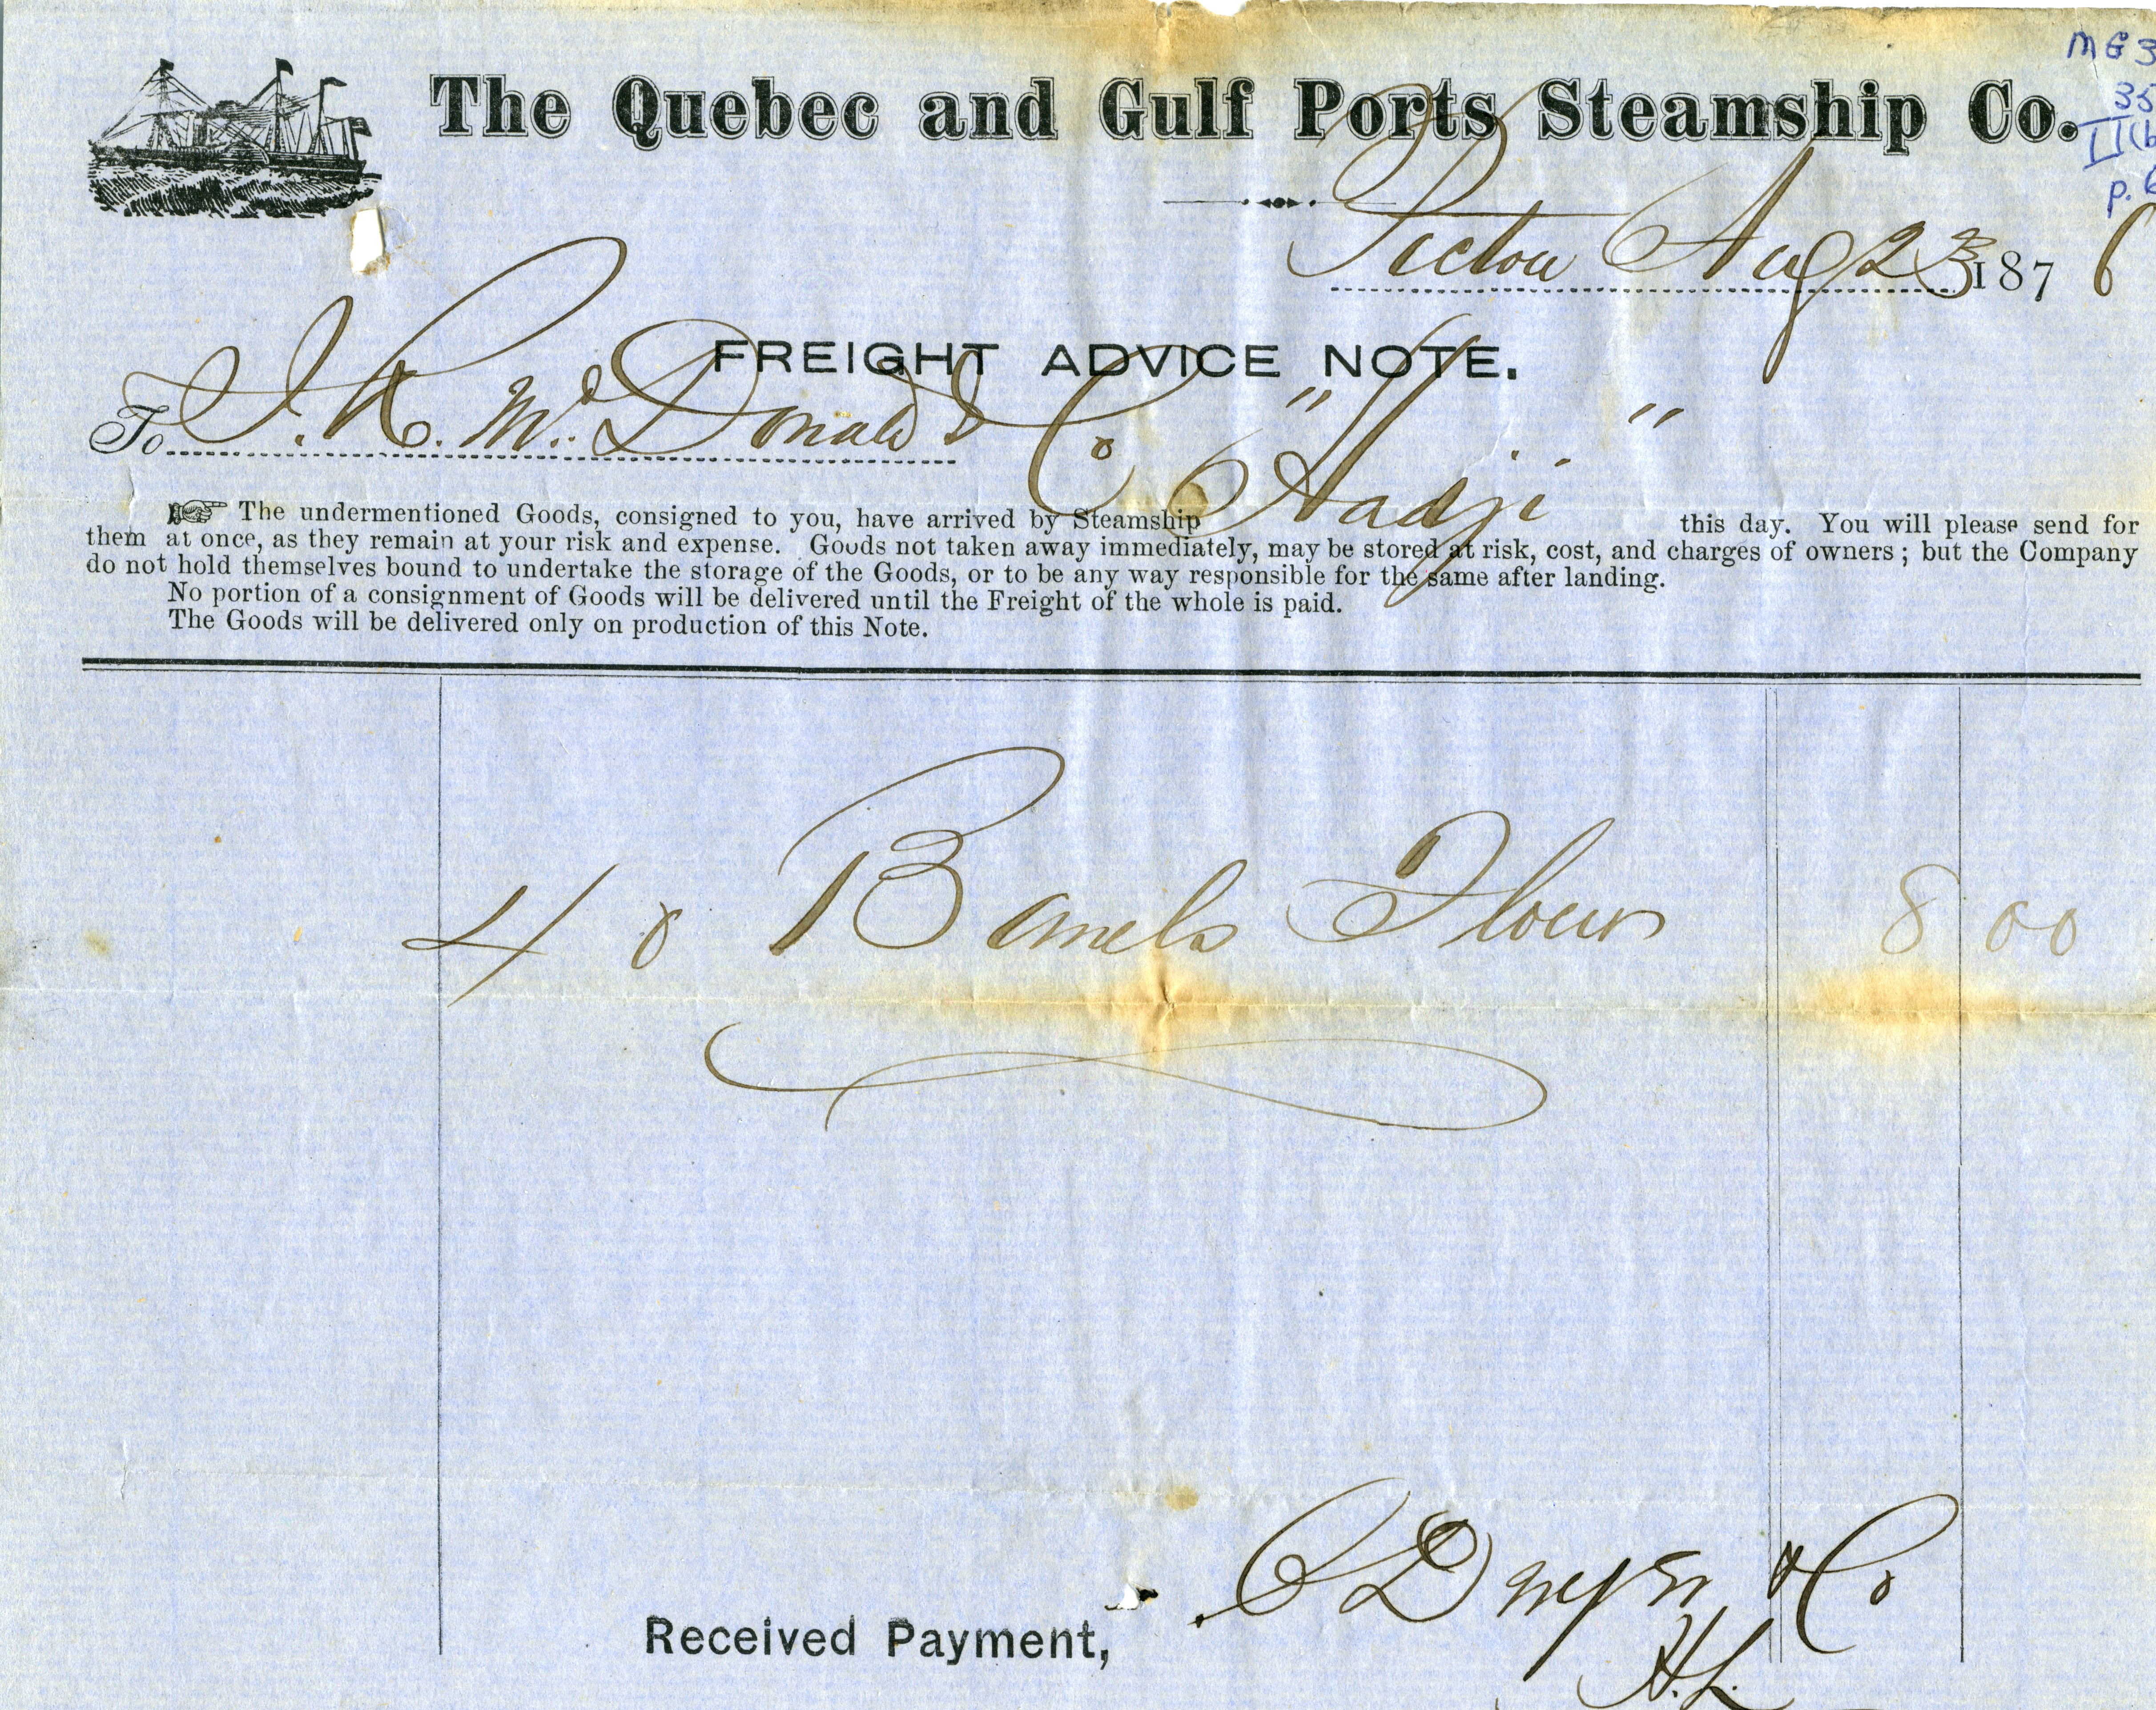 MG 3
35
II(b
p. 6
The Quebec and Gulf Ports Steamship Co.
Pictou Aug 23 1876
FREIGHT ADVICE NOTE.
To J. R. McDonald & Co "Hadji"
The undermentioned Goods, consigned to you, have arrived by Steamship this day. You will please send for
them at once, as they remain at your risk and expense. Goods not taken away immediately, may be stored at risk, cost, and charges of owners; but the Company
do not hold themselves bound to undertake the storage of the Goods, or to be any way responsible for the same after landing.
No portion of a consignment of Goods will be delivered until the Freight of the whole is paid.
The Goods will be delivered only on production of this Note.
40 Barrels Flour 8 00
Received Payment, & Co
H.L.